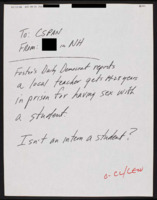 To: CSPAN
From: in NH
Foster's Daily Democrat reports
a local teacher gets years
in prison for having sex with
a student.
Isn't an intern a student?